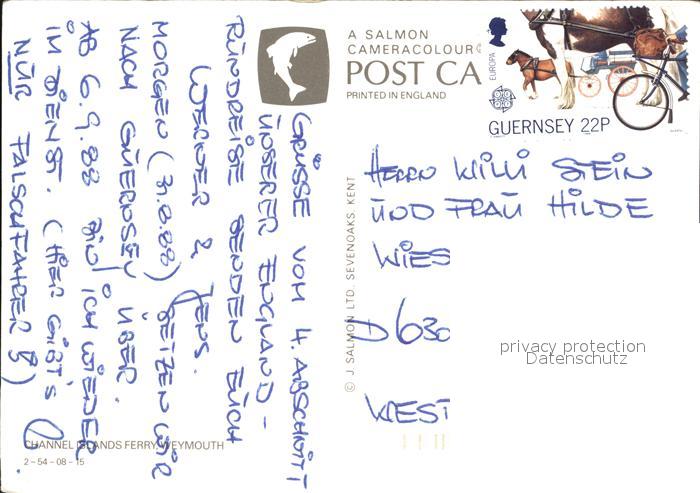 GRÜSSE VOM 4. ABSCHNITT
UNSERER ENGLAND-
RUNDREISE SENDEN EUCH
WERNER & JENS.
MORGEN (31.8.88) SETZEN WIR
NACH GUERNSEY ÜBER.
AB 6.9.88 BIN ICH WIEDER
IM DIENST. (HIER GIBT'S
NUR FALSCHFAHRER!)
CHANNEL ISLANDS FERRY, WEYMOUTH
2-54-08-15
A SALMON
CAMERACOLOUR
POST CA
PRINTED IN ENGLAND
© J. SALMON LTD. SEVENOAKS. KENT
EUROPA
GUERNSEY 22P
HERRN WILLI STEIN
UND FRAU HILDE
WIES
D 630
WEST
privacy protection
Datenschutz